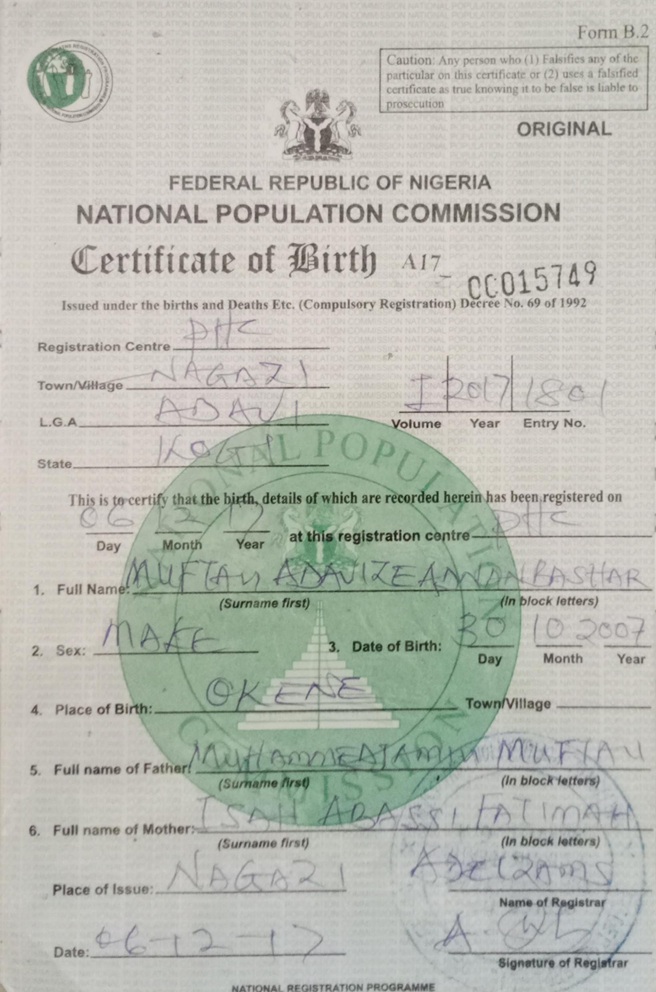 Form B.2
Caution: Any person who (1) Falsifies any of the
particular on this certificate or (2) uses a falsified
certificate as true knowing it to be false is liable to
prosecution
ORIGINAL
FEDERAL REPUBLIC OF NIGERIA
NATIONAL POPULATION COMMISSION
Certificate of Birth A17 CC015749
Issued under the births and Deaths Etc. (Compulsory Registration) Decree No. 69 of 1992
Registration Centre PHC
Town/Village NAGAZI
L.G.A ADAVI
State KOGI
I 2017 1801
Volume Year Entry No.
This is to certify that the birth, details of which are recorded herein has been registered on
06 12 17 at this registration centre PHC
Day Month Year
1. Full Name: MUFTAU BASHAR
(Surname first) (In block letters)
2. Sex: MAKE 3. Date of Birth: 30 10 2007
Day Month Year
4. Place of Birth: OKENE Town/Village
5. Full name of Father: MUFTAU
(Surname first) (In block letters)
6. Full name of Mother: ISAH ABASSI FATIMAH
(Surname first) (In block letters)
Place of Issue: NAGAZI
Name of Registrar
Date: 06-12-17
Signature of Registrar
NATIONAL REGISTRATION PROGRAMME
NATIONAL POPULATION COMMISSION